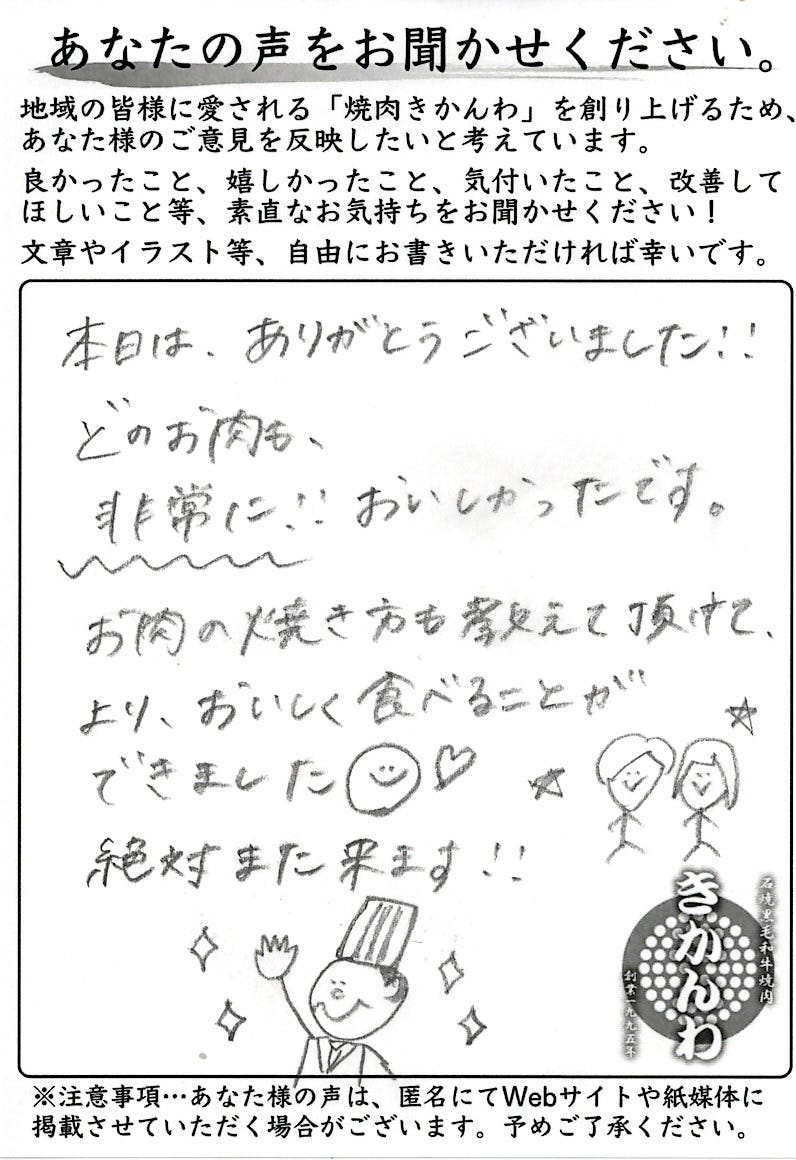 あなたの声をお聞かせください。
地域の皆様に愛される「焼肉きかんわ」を創り上げるため、
あなた様のご意見を反映したいと考えています。
良かったこと、嬉しかったこと、気付いたこと、改善して
ほしいこと等、素直なお気持ちをお聞かせください！
文章やイラスト等、自由にお書きいただければ幸いです。
本日は、ありがとうございました!!
どのお肉も、
非常に!!おいしかったです。
お肉の焼き方も教えて頂けて、
より、おいしく食べることが
できました
絶対また来ます!!
石焼黒毛和牛焼肉
きかんわ
創業一九九五年
※注意事項…あなた様の声は、匿名にてWebサイトや紙媒体に
掲載させていただく場合がございます。予めご了承ください。